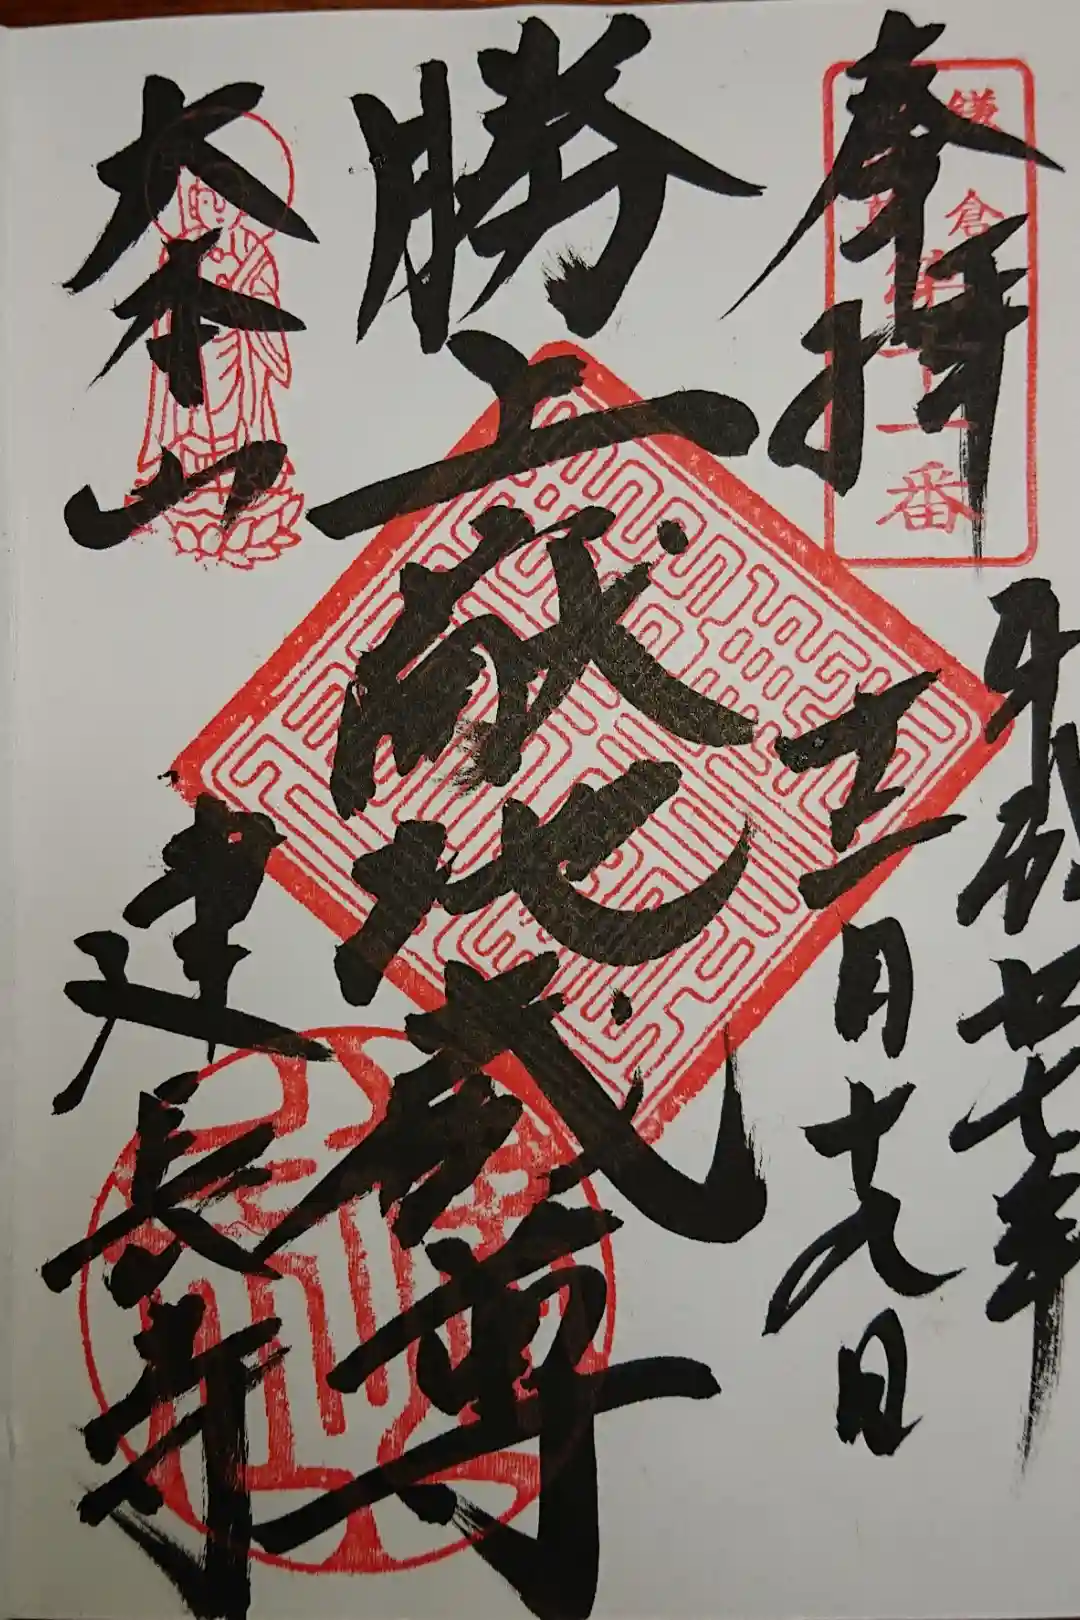 奉拝
鎌倉
第十一番
平成廿七年
正月十九日
勝上嶽地蔵尊
大本山
建長寺